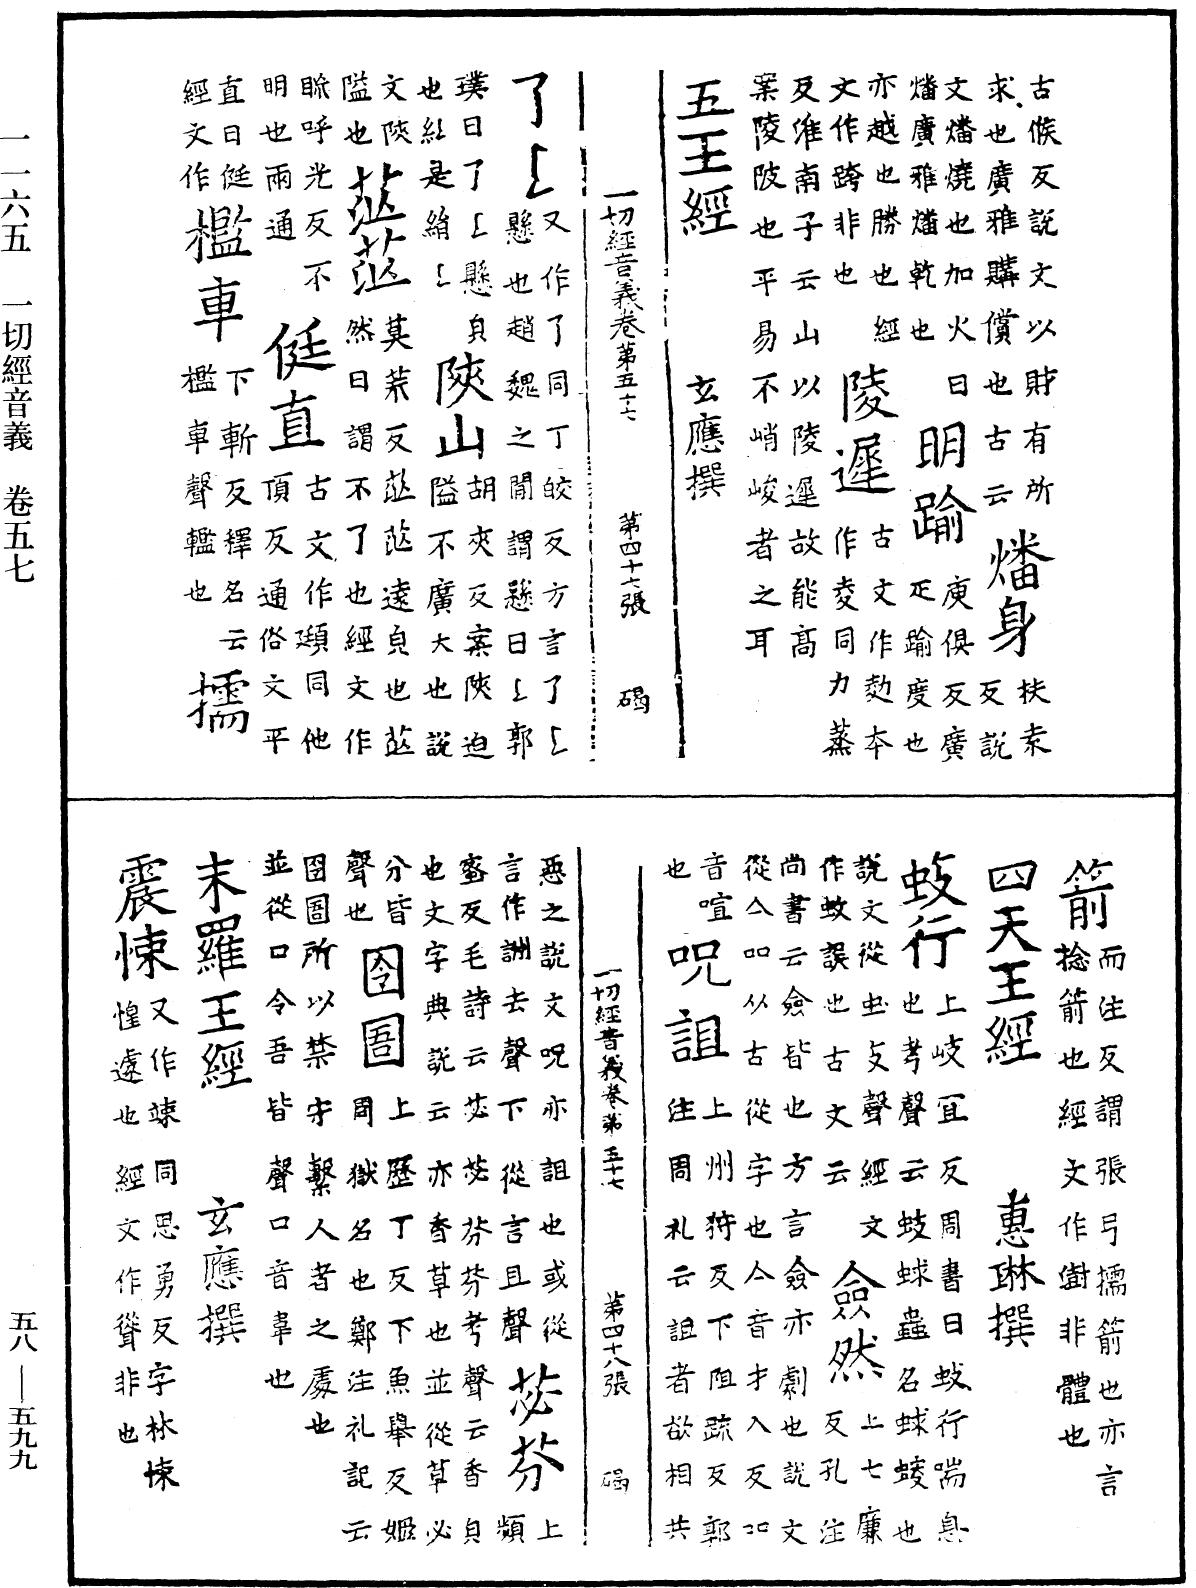 一一六五　一切經音義　卷五七
五八—五九九
古候反說文以財有所
求也廣雅購償也古云
燔身
扶袁
反說
文燔燒也加火曰
燔廣雅燔乾也
明踰
庾俱反廣
疋踰度也
亦越也勝也經
文作跨非也
陵遲
古文作勑夲
作夌同力蒸
反淮南子云山以陵遲故能高
案陵陂也平易不峭峻者之耳
五王經　玄應撰
一切經音義卷第五十七　第四十七張　碣
了𠄌
又作了同丁皎反方言了𠄌
懸也趙魏之間謂懸曰𠄌郭
璞曰了𠄌懸皃
也紅是絹𠄌
陜山
胡夾反案陜迫
隘不廣大也說
文陜
隘也
茫茫
莫荒反茫茫遠皃也茫
然曰謂不了也經文作
䀮呼光反不
明也兩通
侹直
古文作頲同他
頂反通俗文平
直曰侹
經文作
檻車
下斬反釋名云
檻車聲轞也
擩
箭
而注反謂張弓擩箭也亦言
捻箭也經文作樹非體也
四天王經　惠琳撰
蚑行
上岐冝反周書曰蚑行喘息
也考聲云蚑蛷蟲名蛷螋也
說文從虫支聲經文
作蚊誤也古文云
僉然
上七廉
反孔注
尚書云僉皆也方言僉亦劇也說文
從亼吅从古從字也亼音才入反吅
音喧
也
呪詛
上州狩反下阻疏反郭
注周礼云詛者欲相共
一切經音義卷第五十七　第四十八張　碣
惡之說文呪亦詛也或從
言作詶去聲下從言且聲
苾芬
上頻
蜜反毛詩云苾苾芬芬考聲云香皃
也文字典說云亦香草也並從草必
分皆
聲也
囹圄
上歷丁反下魚舉反姬
周獄名也鄭注礼記云
囹圄所以禁守繫人者之處也
並從口令吾皆聲口音韋也
末羅王經　玄應撰
震悚
又作竦同思勇反字林悚
惶遽也經文作聳非也